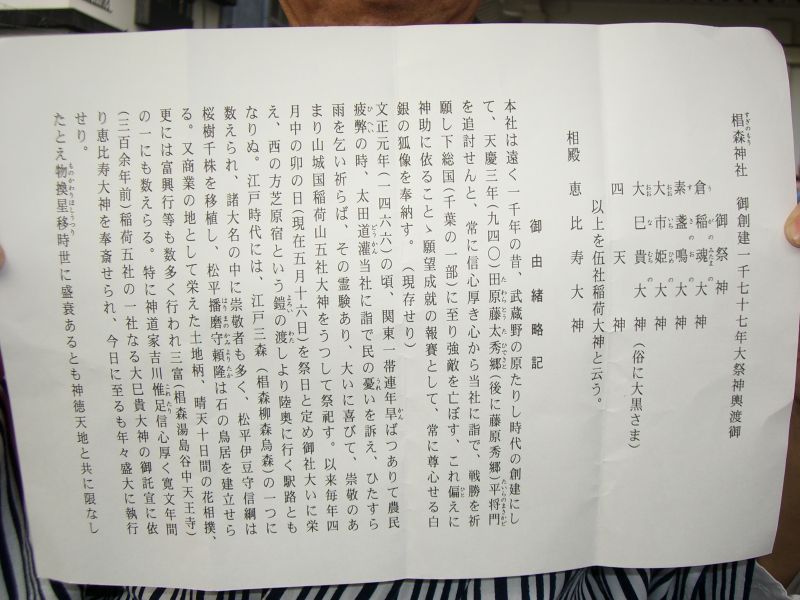 椙森神社 御創建一千七十七年大祭神輿渡御
御祭神
倉稲魂大神
素盞嗚大神
大市姫大神
大巳貴大神(俗に大黒さま)
四天神
以上を伍社稲荷大神と云う。
相殿 恵比寿大神
御由緒略記
本社は遠く一千年の昔、武蔵野の原たりし時代の創建にし
て、天慶三年(九四〇)田原藤太秀郷(後に藤原秀郷)平将門
を追討せんと、常に信心厚き心から当社に詣で、戦勝を祈
願し下総国(千葉の一部)に至り強敵を亡ぼす、これ偏えに
神助に依ることゝ願望成就の報賽として、常に尊心せる白
銀の狐像を奉納す。(現存せり)
文正元年(一四六六)の頃、関東一帯連年旱ばつありて農民
疲弊の時、太田道灌当社に詣で民の憂いを訴え、ひたすら
雨を乞い祈らば、その霊験あり、大いに喜びて、崇敬のあ
まり山城国稲荷山五社大神をうつして祭祀す。以来毎年四
月中の卯の日(現在五月十六日)を祭日と定め御社大いに栄
え、西の方芝原宿という鎧の渡しより陸奥に行く駅路とも
なりぬ。江戸時代には、江戸三森(椙森柳森烏森)の一つに
数えられ、諸大名の中に崇敬者も多く、松平伊豆守信綱は
桜樹千株を移植し、松平播磨守頼隆は石の鳥居を建立せら
る。又商業の地として栄えた土地柄、晴天十日間の花相撲、
更には富興行等も数多く行われ三富(椙森湯島谷中天王寺)
の一にも数えらる。特に神道家吉川惟足信心厚く寛文年間
(三百余年前)稲荷五社の一社なる大巳貴大神の御託宣に依
り恵比寿大神を奉斎せられ、今日に至るも年々盛大に執行
せり。
たとえ物換星移時世に盛衰あるとも神徳天地と共に限なし